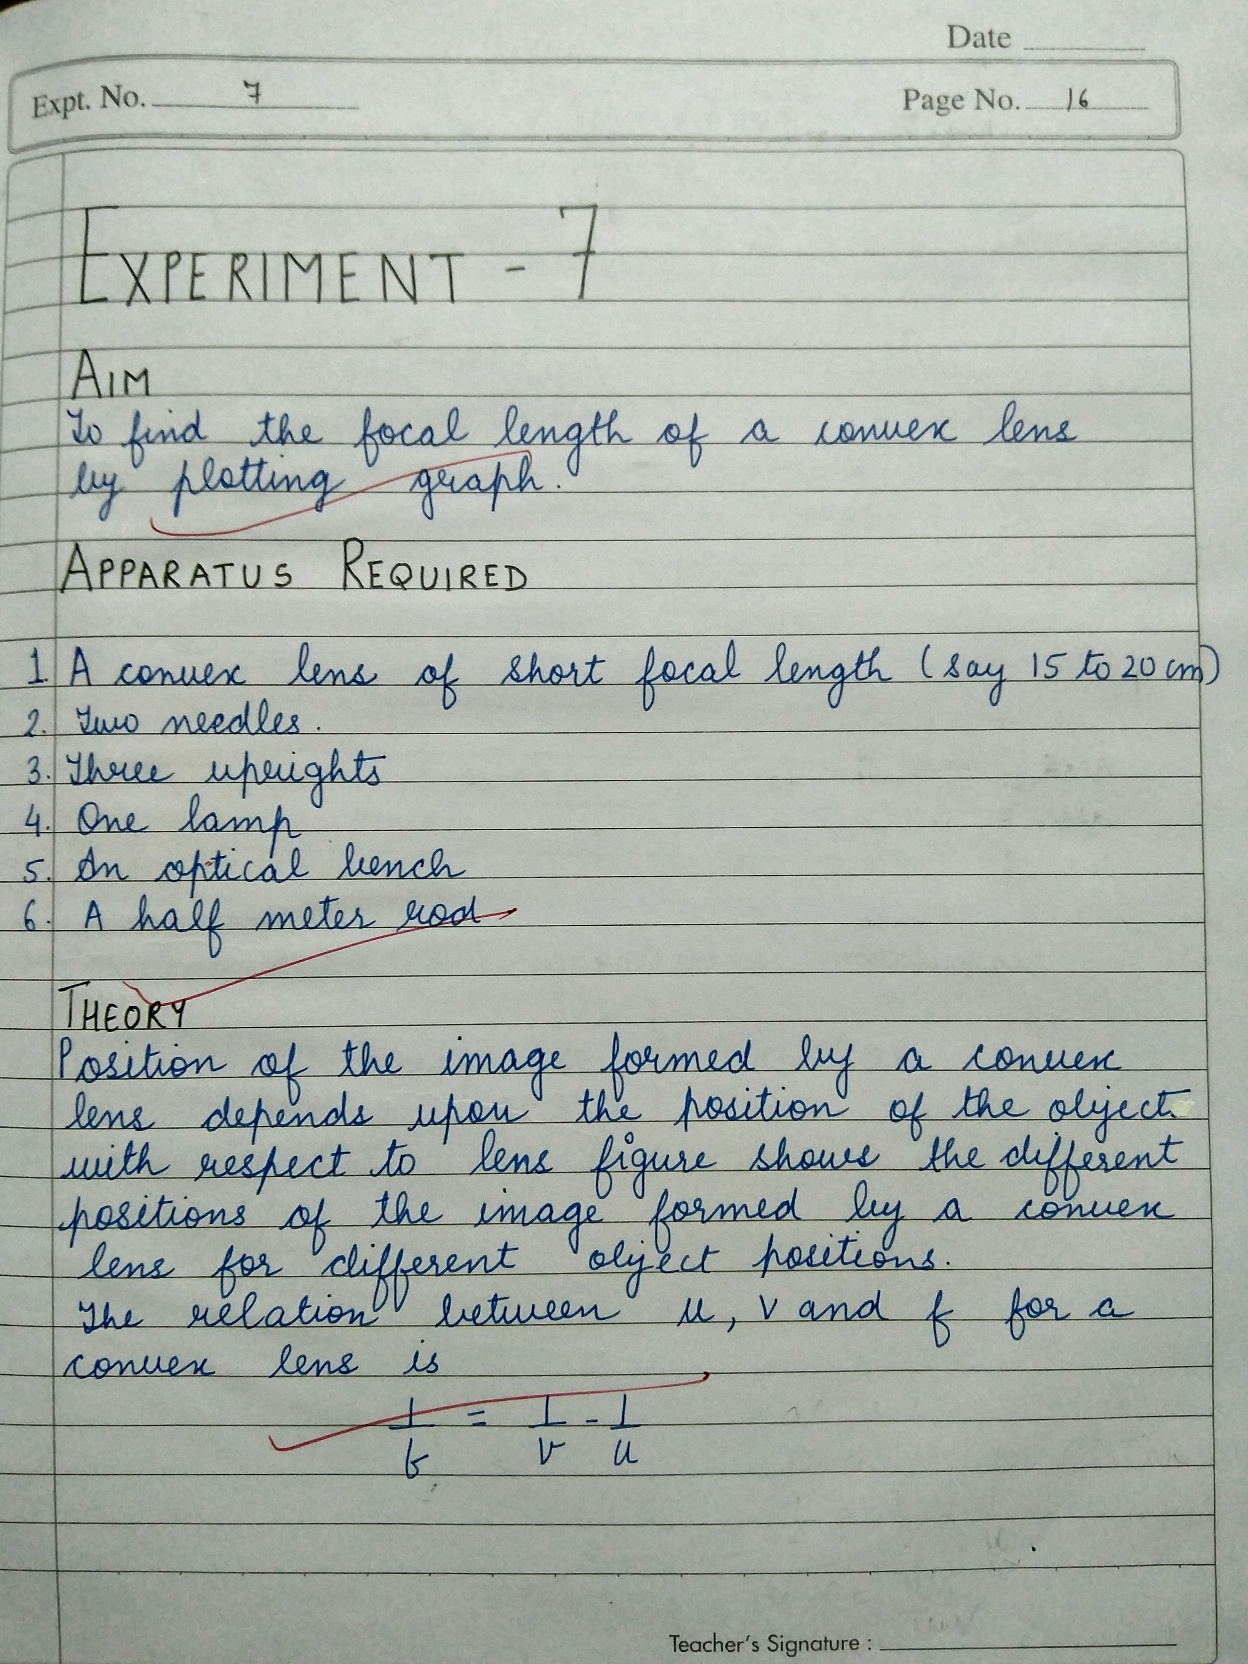 Date
Expt. No. 7
Page No. 16
EXPERIMENT - 7
AIM
To find the focal length of a convex lens
by plotting graph.
APPARATUS REQUIRED
1. A convex lens of short focal length (say 15 to 20 cm)
2. Two needles.
3. Three uprights
4. One lamp
5. An optical bench
6. A half meter rod
THEORY
Position of the image formed by a convex
lens depends upon the position of the object
with respect to lens figure shows the different
positions of the image formed by a convex
lens for different object positions.
The relation between u, v and f for a
convex lens is
1/f = 1/v - 1/u
Teacher's Signature :